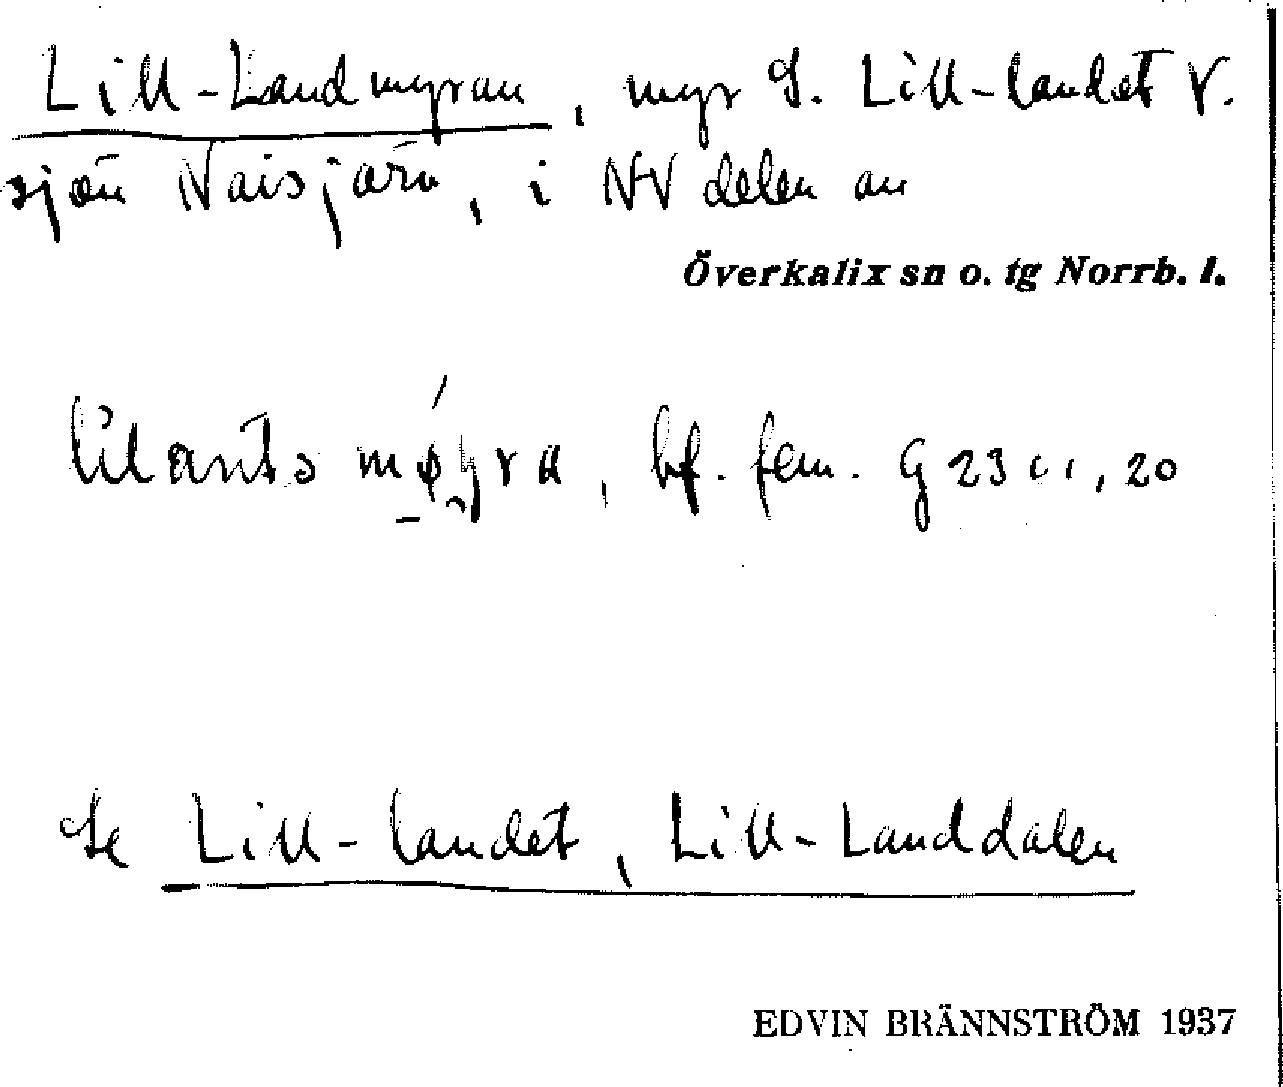 Lill-Landmyran, myr S. Lill-landet V.
sjön Naisjärv, i NV delen av
Överkalix sn o. tg Norrb. l.
bf. fem. G 23 , 20
Se Lill-landet, Lill-Landdalen
EDVIN BRÄNNSTRÖM 1937